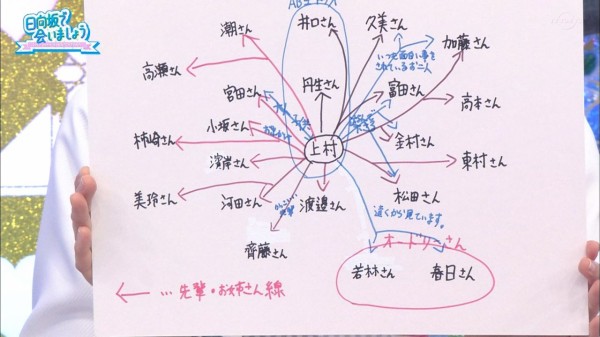 日向坂で
会いましょう
AB型
井口さん
久美さん
潮さん
加藤さん
いつも面白い事を
されているお二人
高瀬さん
宮田さん
丹生さん
富田さん
高本さん
小坂さん
柿崎さん
上村
金村さん
濱岸さん
東村さん
美玲さん
河田さん
渡邉さん
松田さん
遠くから見ています。
齊藤さん
オードリーさん
若林さん
春日さん
… 先輩・お姉さん線